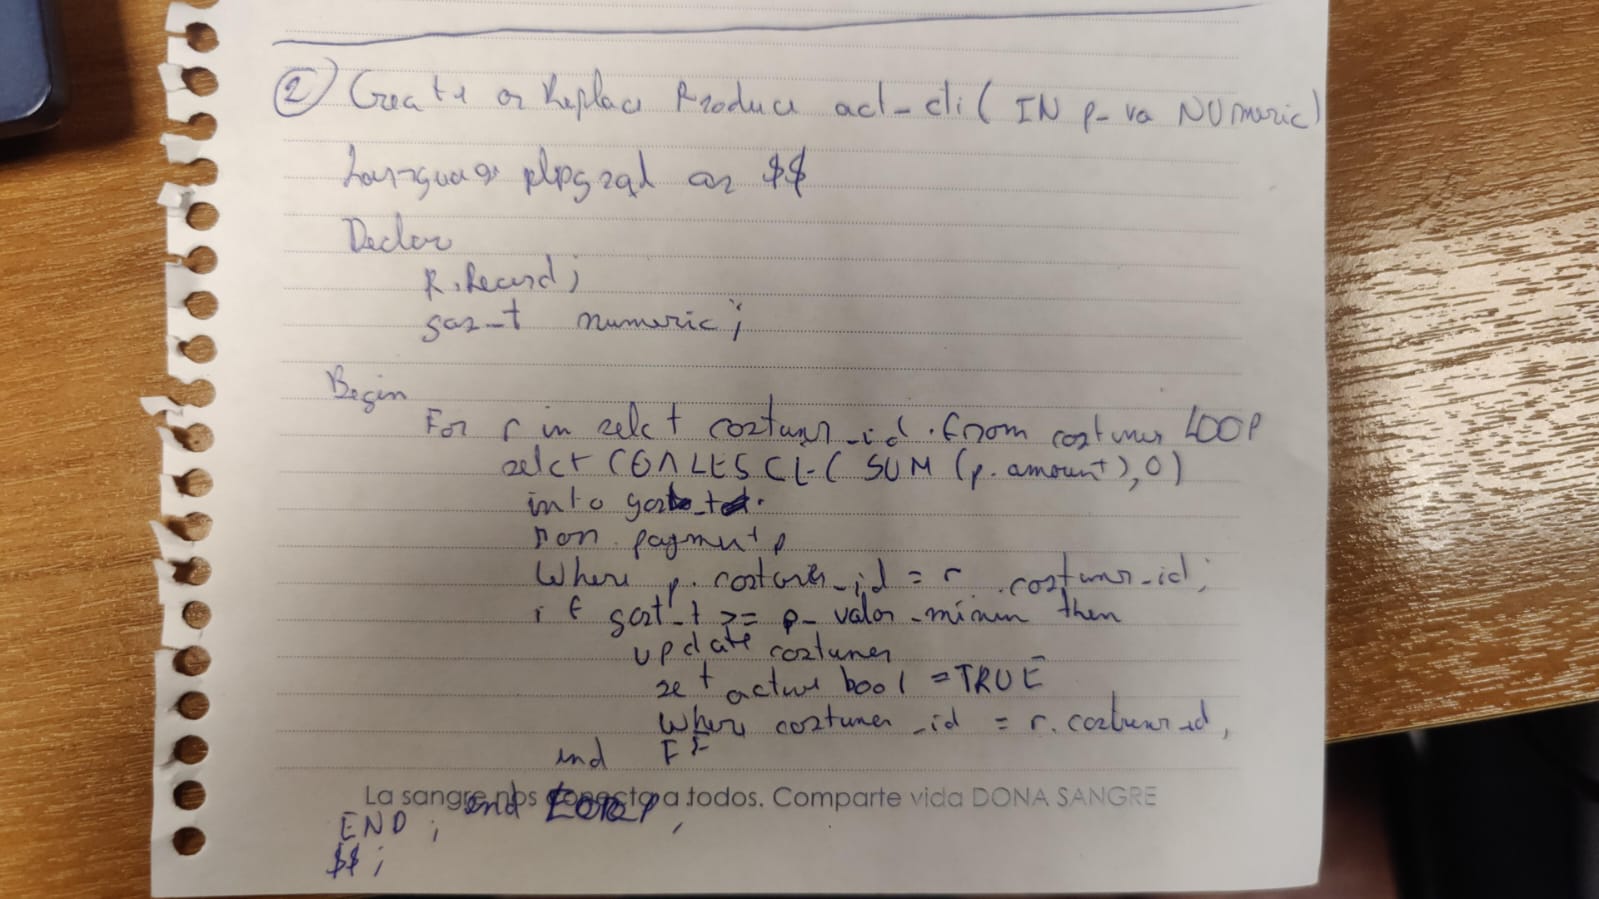 ② Create or Replace Produce act-cli( IN p-va NUmeric)
Language plpgsql as $$
Declar
R. Record;
gas-t numeric;
Begin
For r in selct costumer_id. from costumer LOOP
selct COALESCE( SUM (p.amount),0)
into gast_t
from payment p
Where p. costumer_id = r .costumer_id;
if gast_t >= p_ valor_minim then
update costumer
set active bool = TRUE
Where costumer_id = r. costumer_id,
end IF
La sangre nos conecta a todos. Comparte vida DONA SANGRE
end LOOP,
END ;
$$ ;